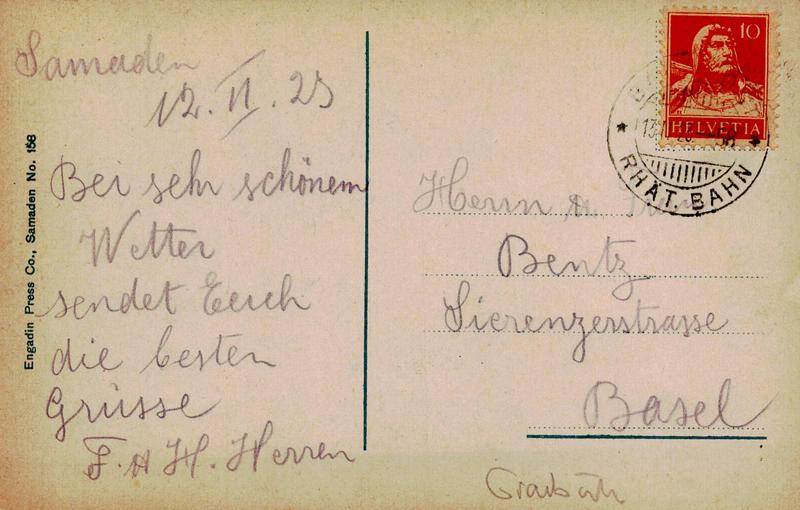 Samaden
12. II. 25
Bei sehr schönem
Wetter
sendet Euch
die besten
Grüsse
F. H. Herren
Engadin Press Co., Samaden No. 158
10
HELVETIA
RHÄT. BAHN
Herrn
Bentz
Sierenzerstrasse
Basel